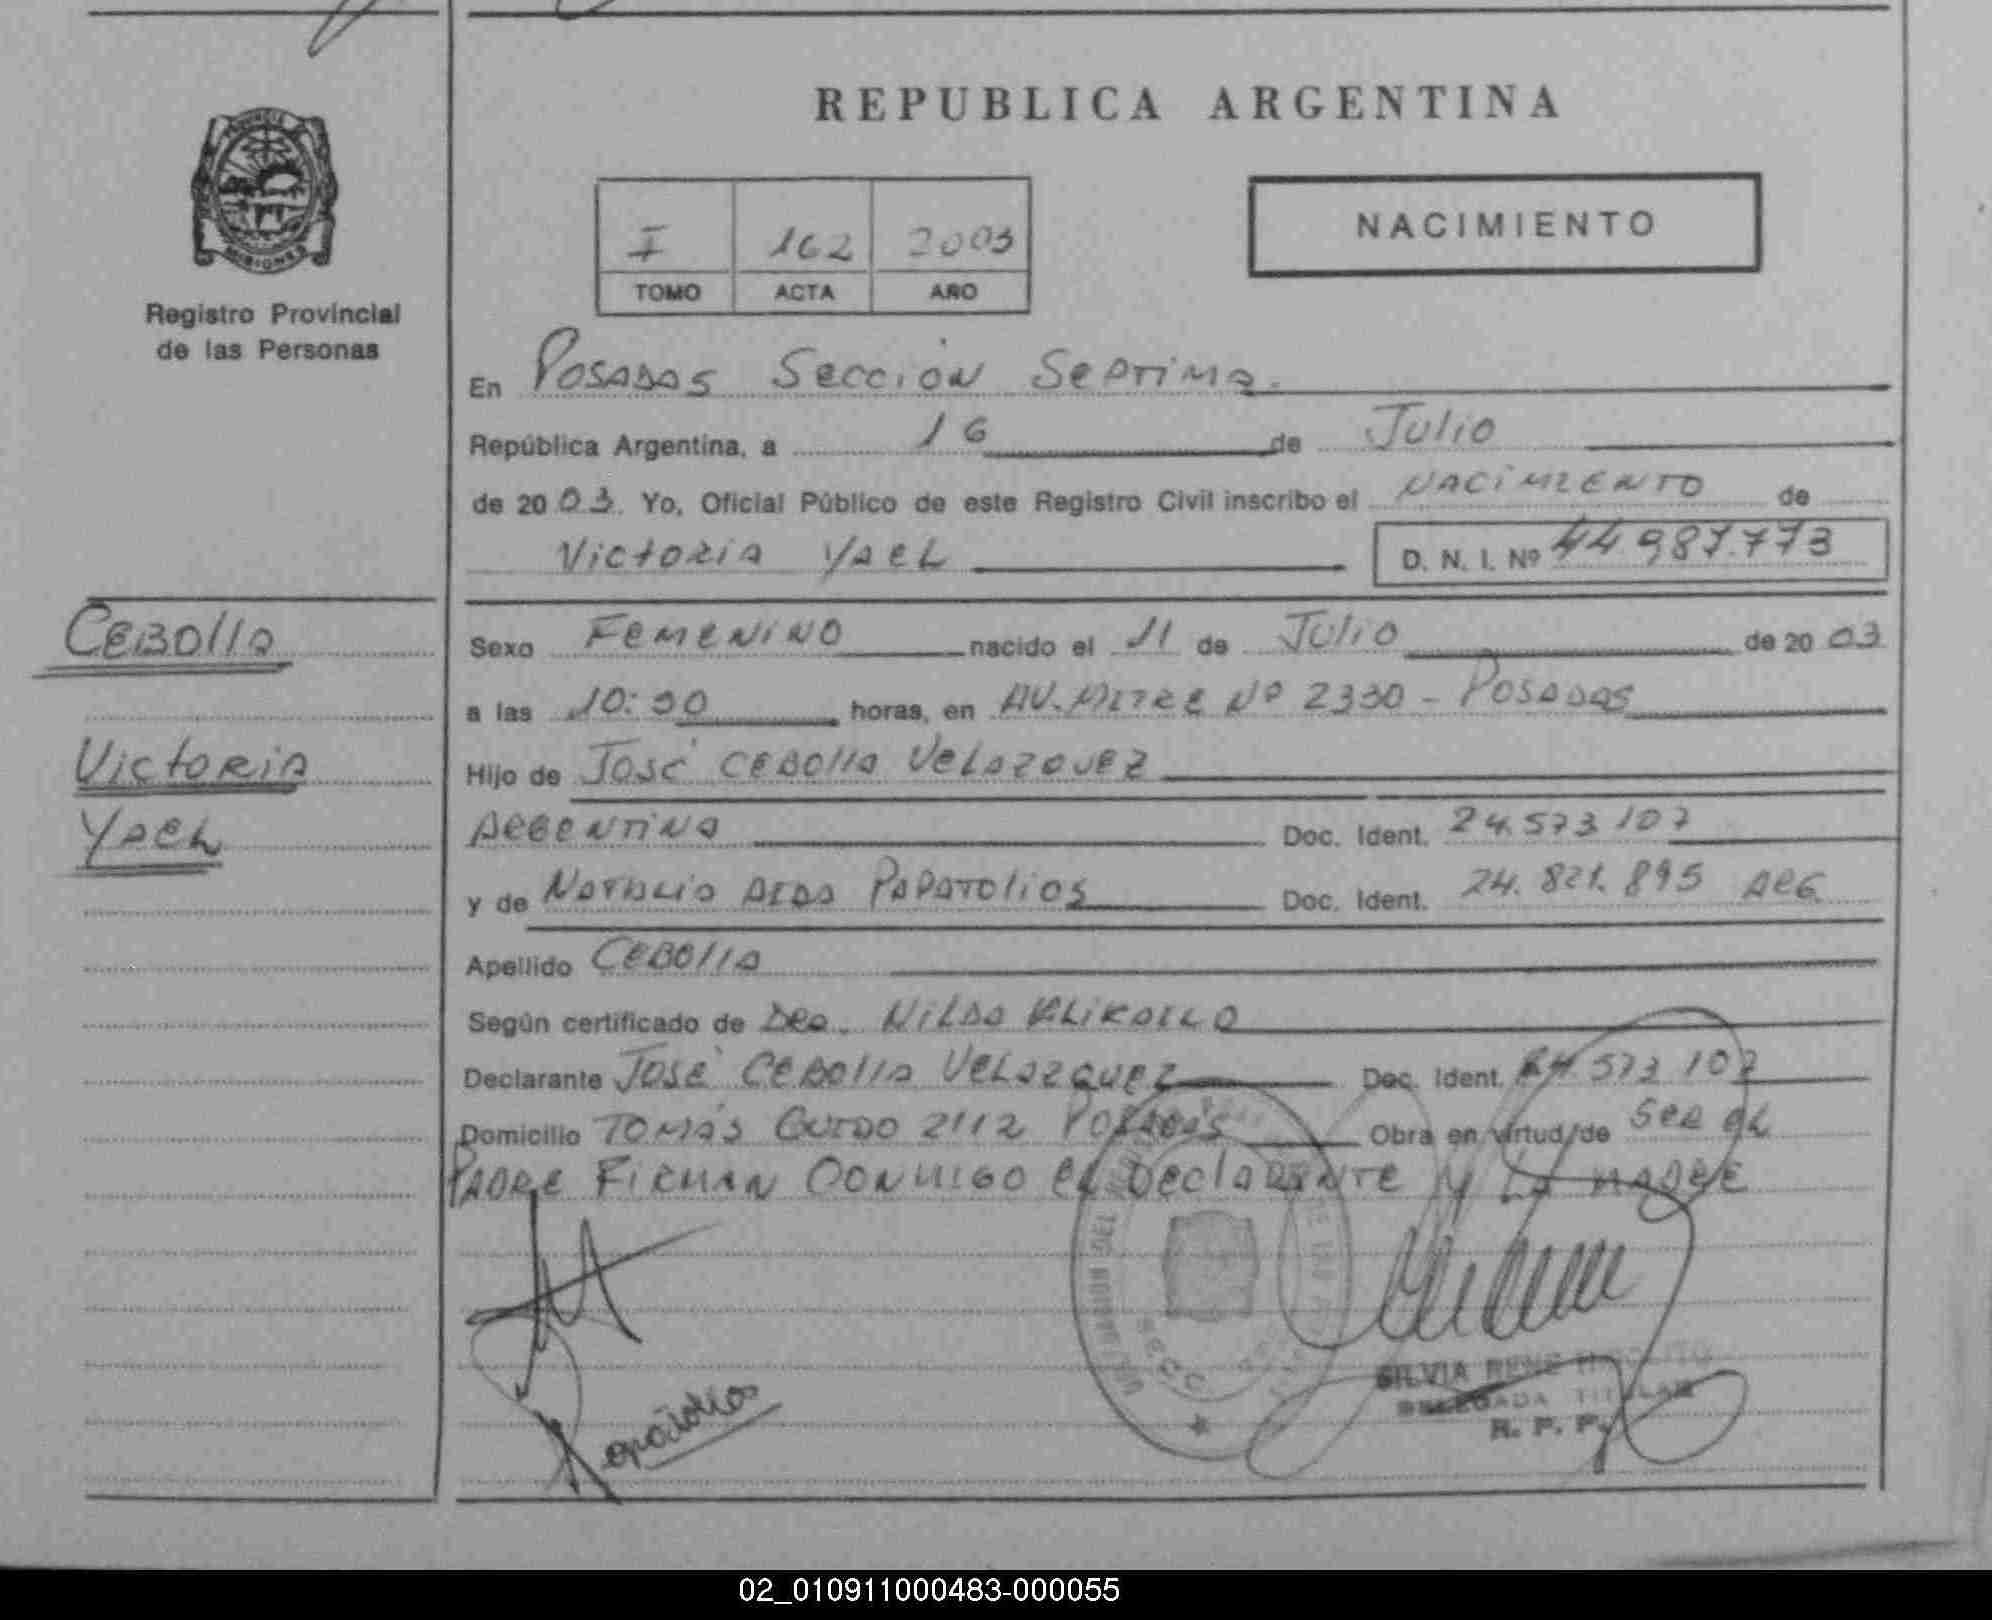 REPUBLICA ARGENTINA
PROVINCIA DE
MISIONES
Registro Provincial
de las Personas
I 162 2003
TOMO ACTA AÑO
NACIMIENTO
En Posadas Sección Septima.
República Argentina, a 16 de Julio
de 2003. Yo, Oficial Público de este Registro Civil inscribo el NACIMIENTO de
Victoria Yael D. N. I. Nº 44987.773
Cebolla
Victoria
Yael
Sexo Femenino nacido el 11 de Julio de 2003
a las 10:30 horas, en AV. MITRE Nº 2330 - Posadas
Hijo de José Cebolla Velazquez
Argentina Doc. Ident. 24.573 107
y de Natalia Papatolios Doc. Ident. 24.821.895 ARG.
Apellido Cebolla
Según certificado de Dra. Nilda
Declarante José Cebolla Velazquez Doc. Ident. 24.573 107
Domicilio Tomás Guido 2112 Posadas Obra en virtud de Ser el
Padre Firman Conmigo el Declarante y La Madre
SILVIA RENE HIPOLITO
DELEGADA TITULAR
R. P. P.
02_010911000483-000055